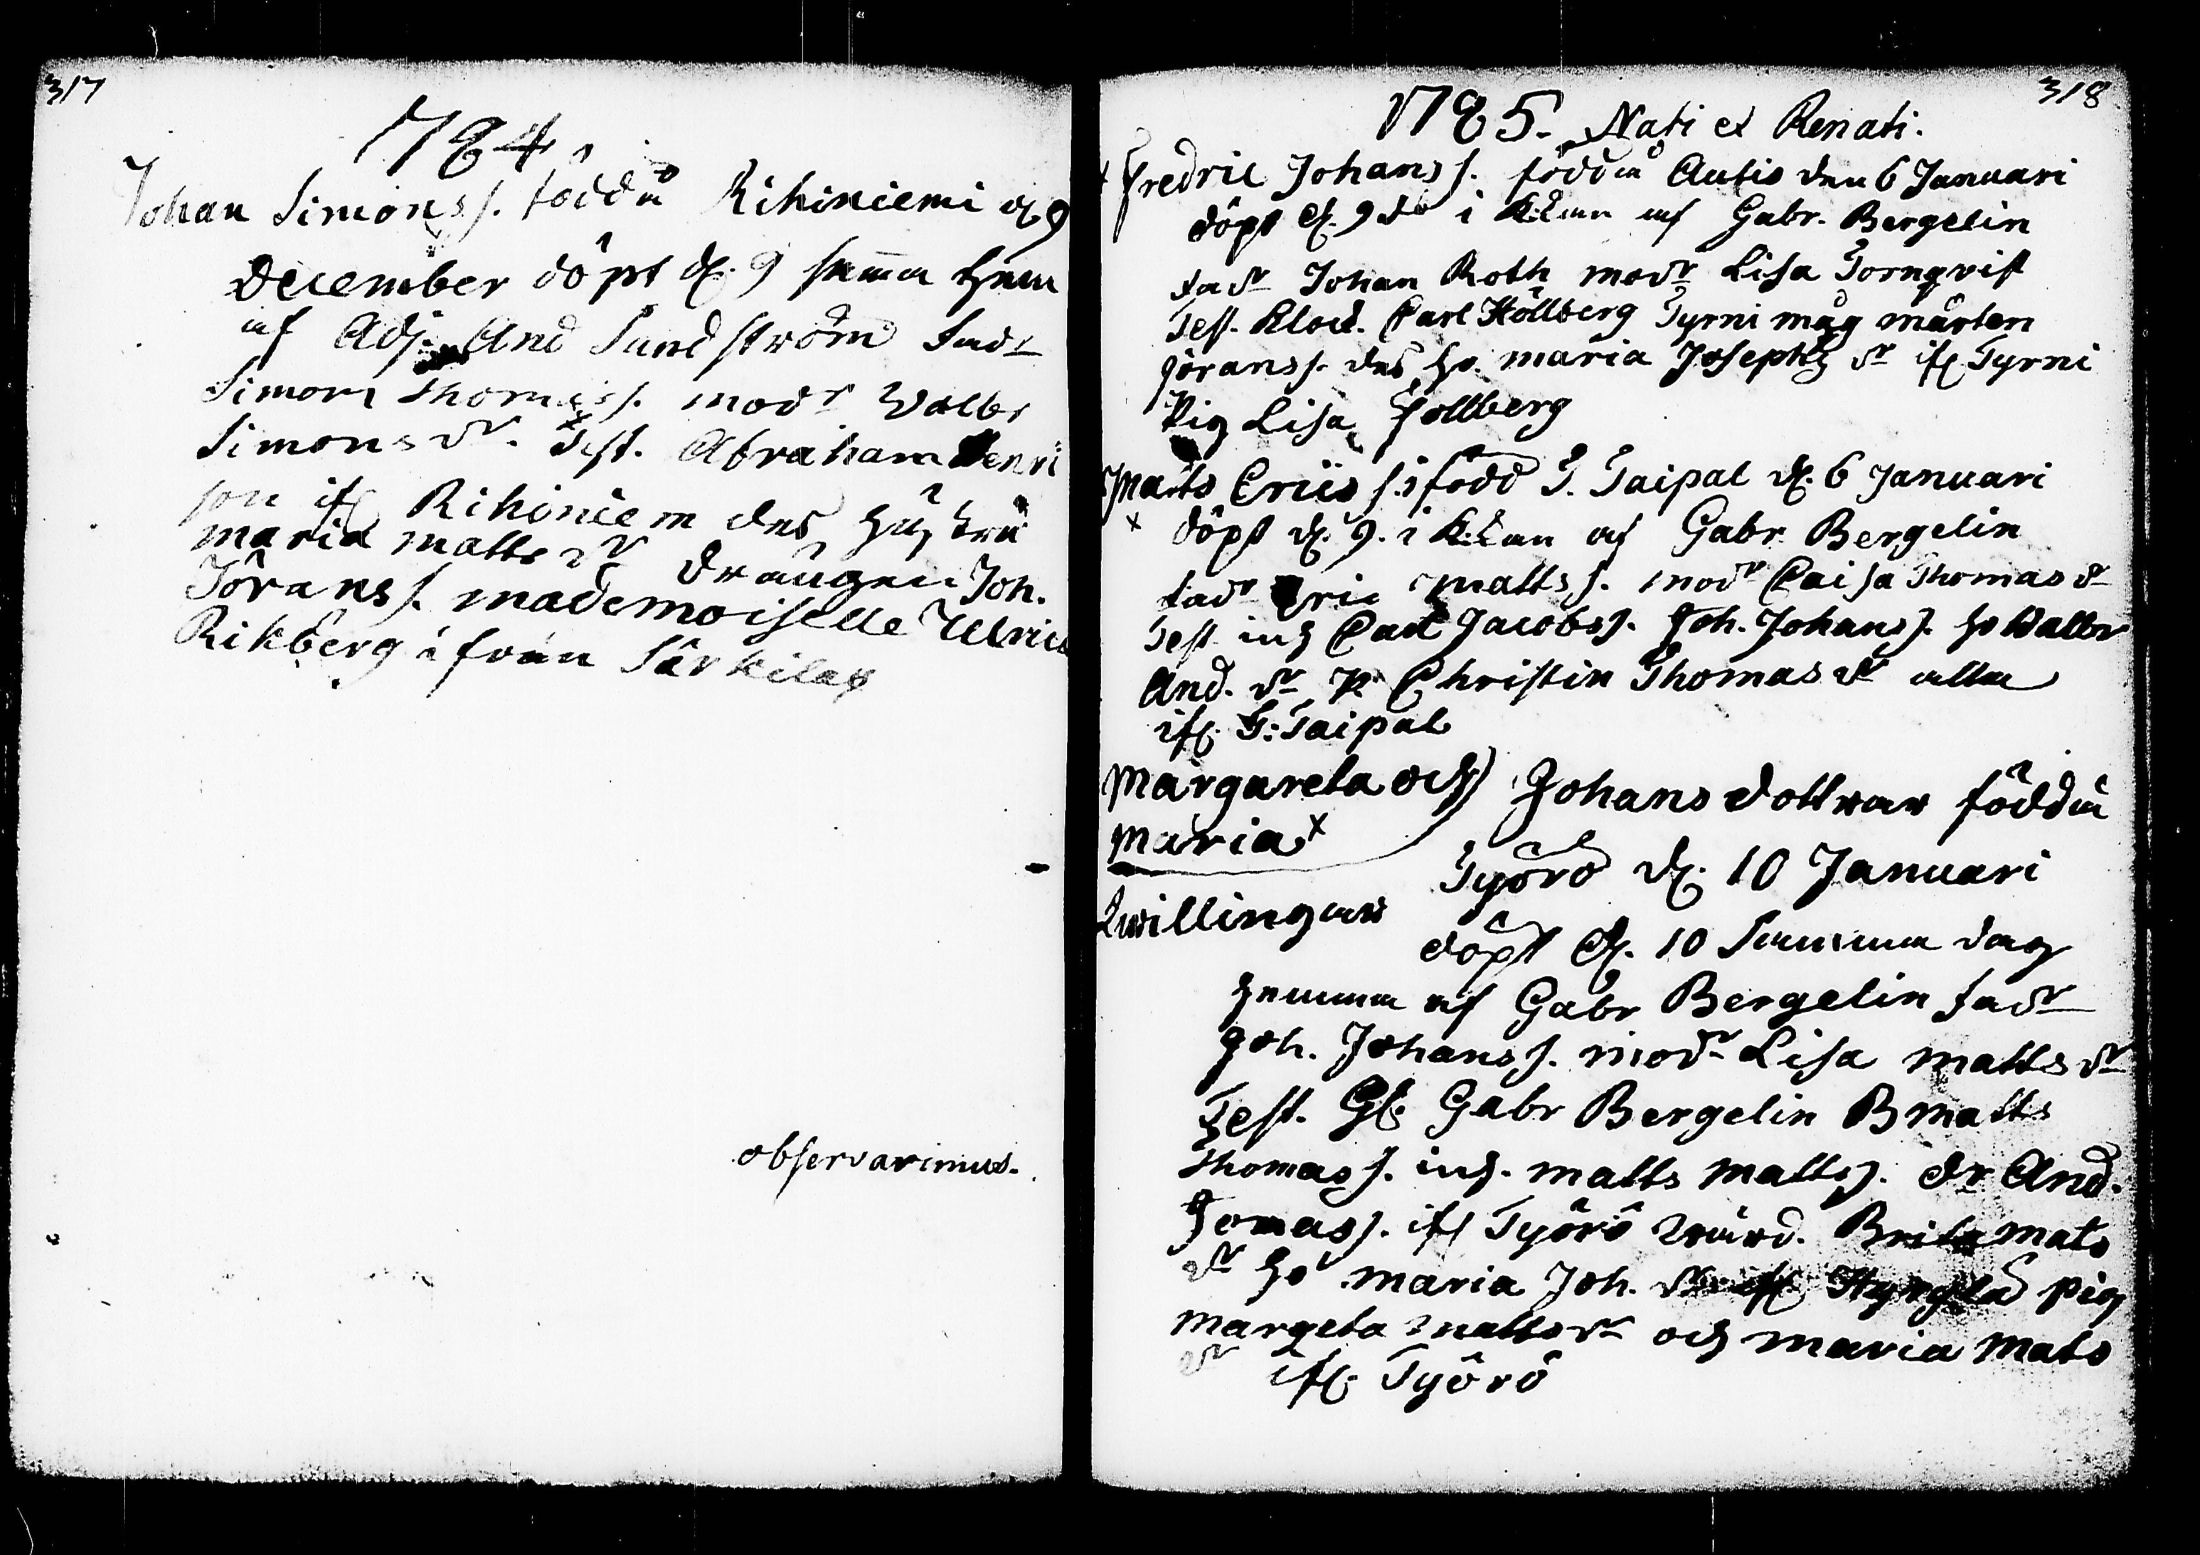 317
1784
Johan Simons s. född i Rihiniemi d. 9
December döpt d. 9 samma hema
af Adj. And Sundström fadr
Simon Thomas s. modr Walbr
Simons dr. Test. Abraham Henri
son if Rihiniem des hustru
maria matts dr drängen Joh.
Jörans s. mademoiselle Ulrica
Rikberg ifrån Särkilax
observarimus.
318
1785. Nati et Renati.
Fredric Johans s. född i Autio den 6 Januari
döpt d. 9 do i K:kan af Gabr. Bergelin
fadr Johan Roth modr Lisa Tornqvist
Test. Klock. Carl Höllberg Tyrni måg mårten
jörans s. des hu. maria Josephs dr if Tyrni
Pig Lisa Hollberg
Matts Erics s. född i T. Taipal d. 6 Januari
döpt d. 9. i K:kan af Gabr Bergelin
fadr Eric Matts s. modr Caisa Thomas dr
Test inh Carl Jacobs s. Joh. Johans s. hu Walbr
And. dr P. Christin Thomas dr alla
if. T: Taipal
Margareta och Johans dottrar född i
Maria
Työrö d. 10 Januari
Twillingar
döpt d. 10 Samma dag
hemma af Gabr Bergelin fadr
Joh. Johans s. modr Lisa matts dr
Test. Gabr Bergelin B matts
Thomas s. inh. matts Matts s. dr And.
Tomas s. if Työrö Brita mats
dr hu maria Joh. pig
margeta matts dr och maria Mats
dr if. Työrö